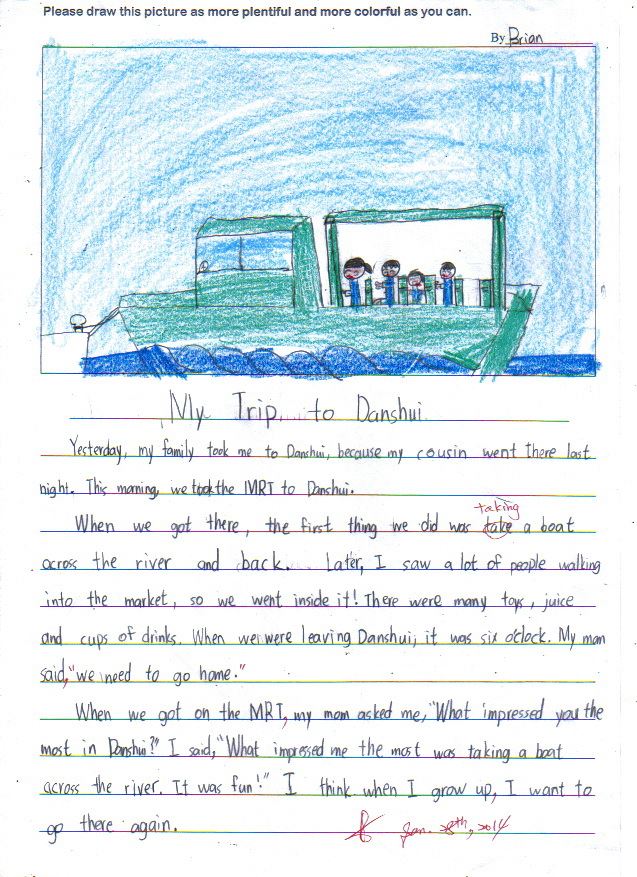 Please draw this picture as more plentiful and more colorful as you can.
By Brian
My Trip to Danshui
Yesterday, my family took me to Danshui, because my cousin went there last
night. This morning, we took the MRT to Danshui.
taking
When we got there, the first thing we did was take a boat
across the river and back. Later, I saw a lot of people walking
into the market, so we went inside it! There were many toys, juice
and cups of drinks. When we were leaving Danshui, it was six o'clock. My mom
said, "we need to go home."
When we got on the MRT, my mom asked me, "What impressed you the
most in Danshui?" I said, "What impressed me the most was taking a boat
across the river. It was fun!" I think when I grow up, I want to
go there again.
Jan. 28th, 2014